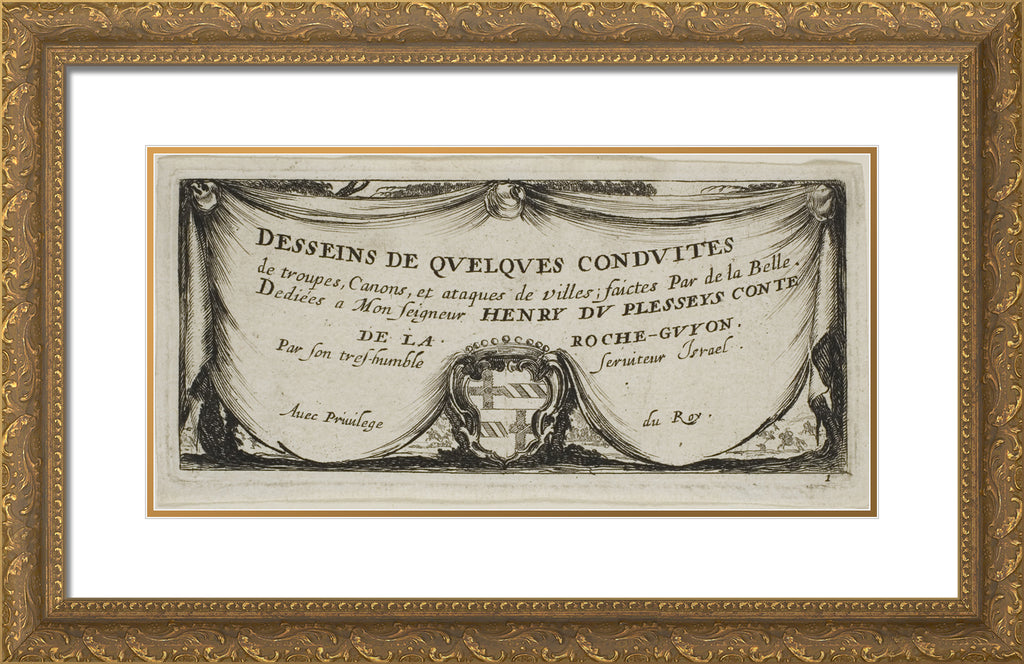 DESSEINS DE QVELQVES CONDVITES
de troupes, Canons, et ataques de villes; faictes Par de la Belle.
Dediées a Mon seigneur HENRY DV PLESSEYS CONTE
DE LA. ROCHE-GUYON.
Par son tres-humble seruiteur Israel.
Auec Priuilege du Roy.
1